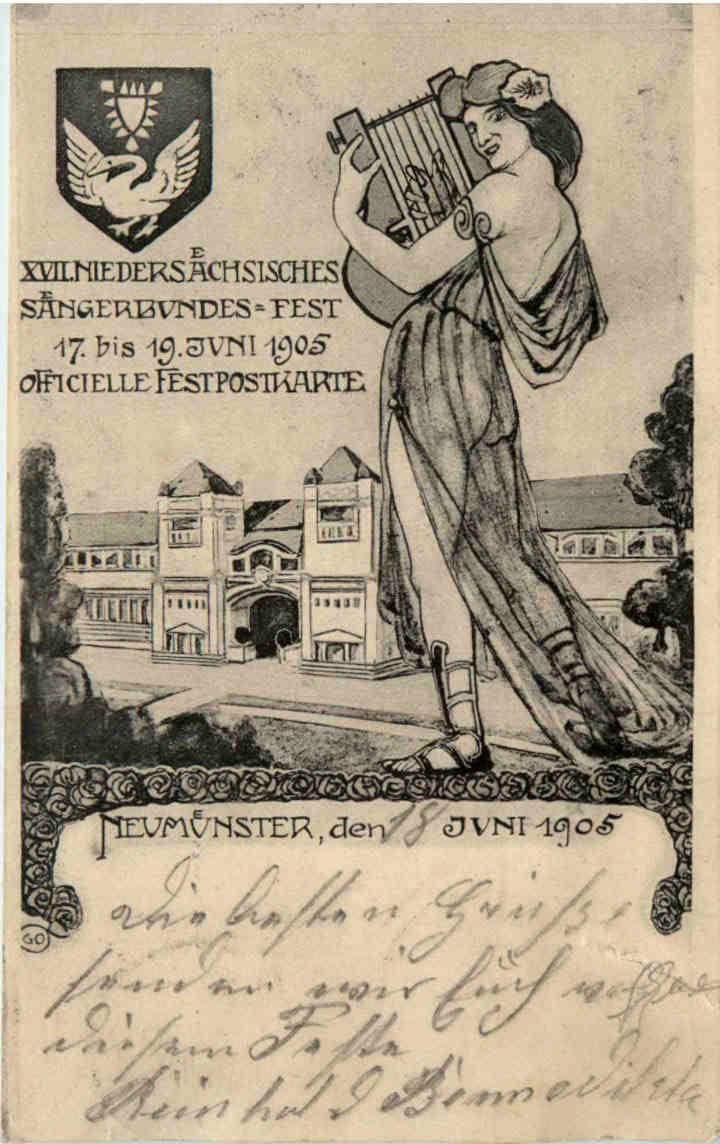 XVII. NIEDERSÆCHSISCHES
SÆNGERBUNDES=FEST
17. bis 19. JUNI 1905
OFFICIELLE FESTPOSTKARTE
NEUMUENSTER, den 18 JUNI 1905
GO
Die besten Grüße
senden wir Euch
diesem Feste
Reinhold